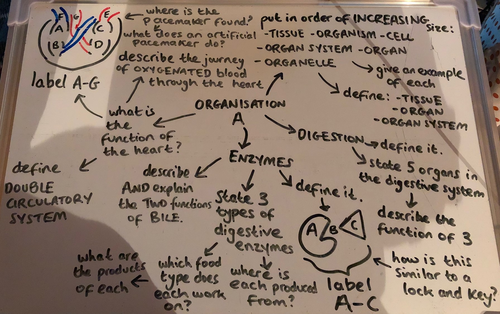 F G E
A C
B D
label A-G
where is the
pacemaker found?
&
what does an artificial
pacemaker do?
describe the journey
of OXYGENATED blood
through the heart
put in order of INCREASING size:
-TISSUE -ORGANISM -CELL
-ORGAN SYSTEM -ORGAN
-ORGANELLE
give an example
of each
define: -TISSUE
-ORGAN
-ORGAN SYSTEM
ORGANISATION
A
what is
the
function of
the heart?
define
DOUBLE
CIRCULATORY
SYSTEM
ENZYMES
describe
AND explain
the TWO functions
of BILE.
State 3
types of
digestive
enzymes
which food
type does
each work
on?
what are
the products
of each
where is
each produced
from?
define it.
A B C
label
A-C
how is this
similar to a
lock and key?
DIGESTION
define it.
state 5 organs in
the digestive system
describe the
function of 3